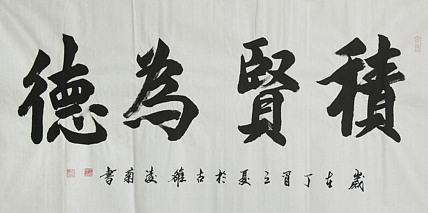 積賢為德
歲在丁酉之夏於古雍凌菊書